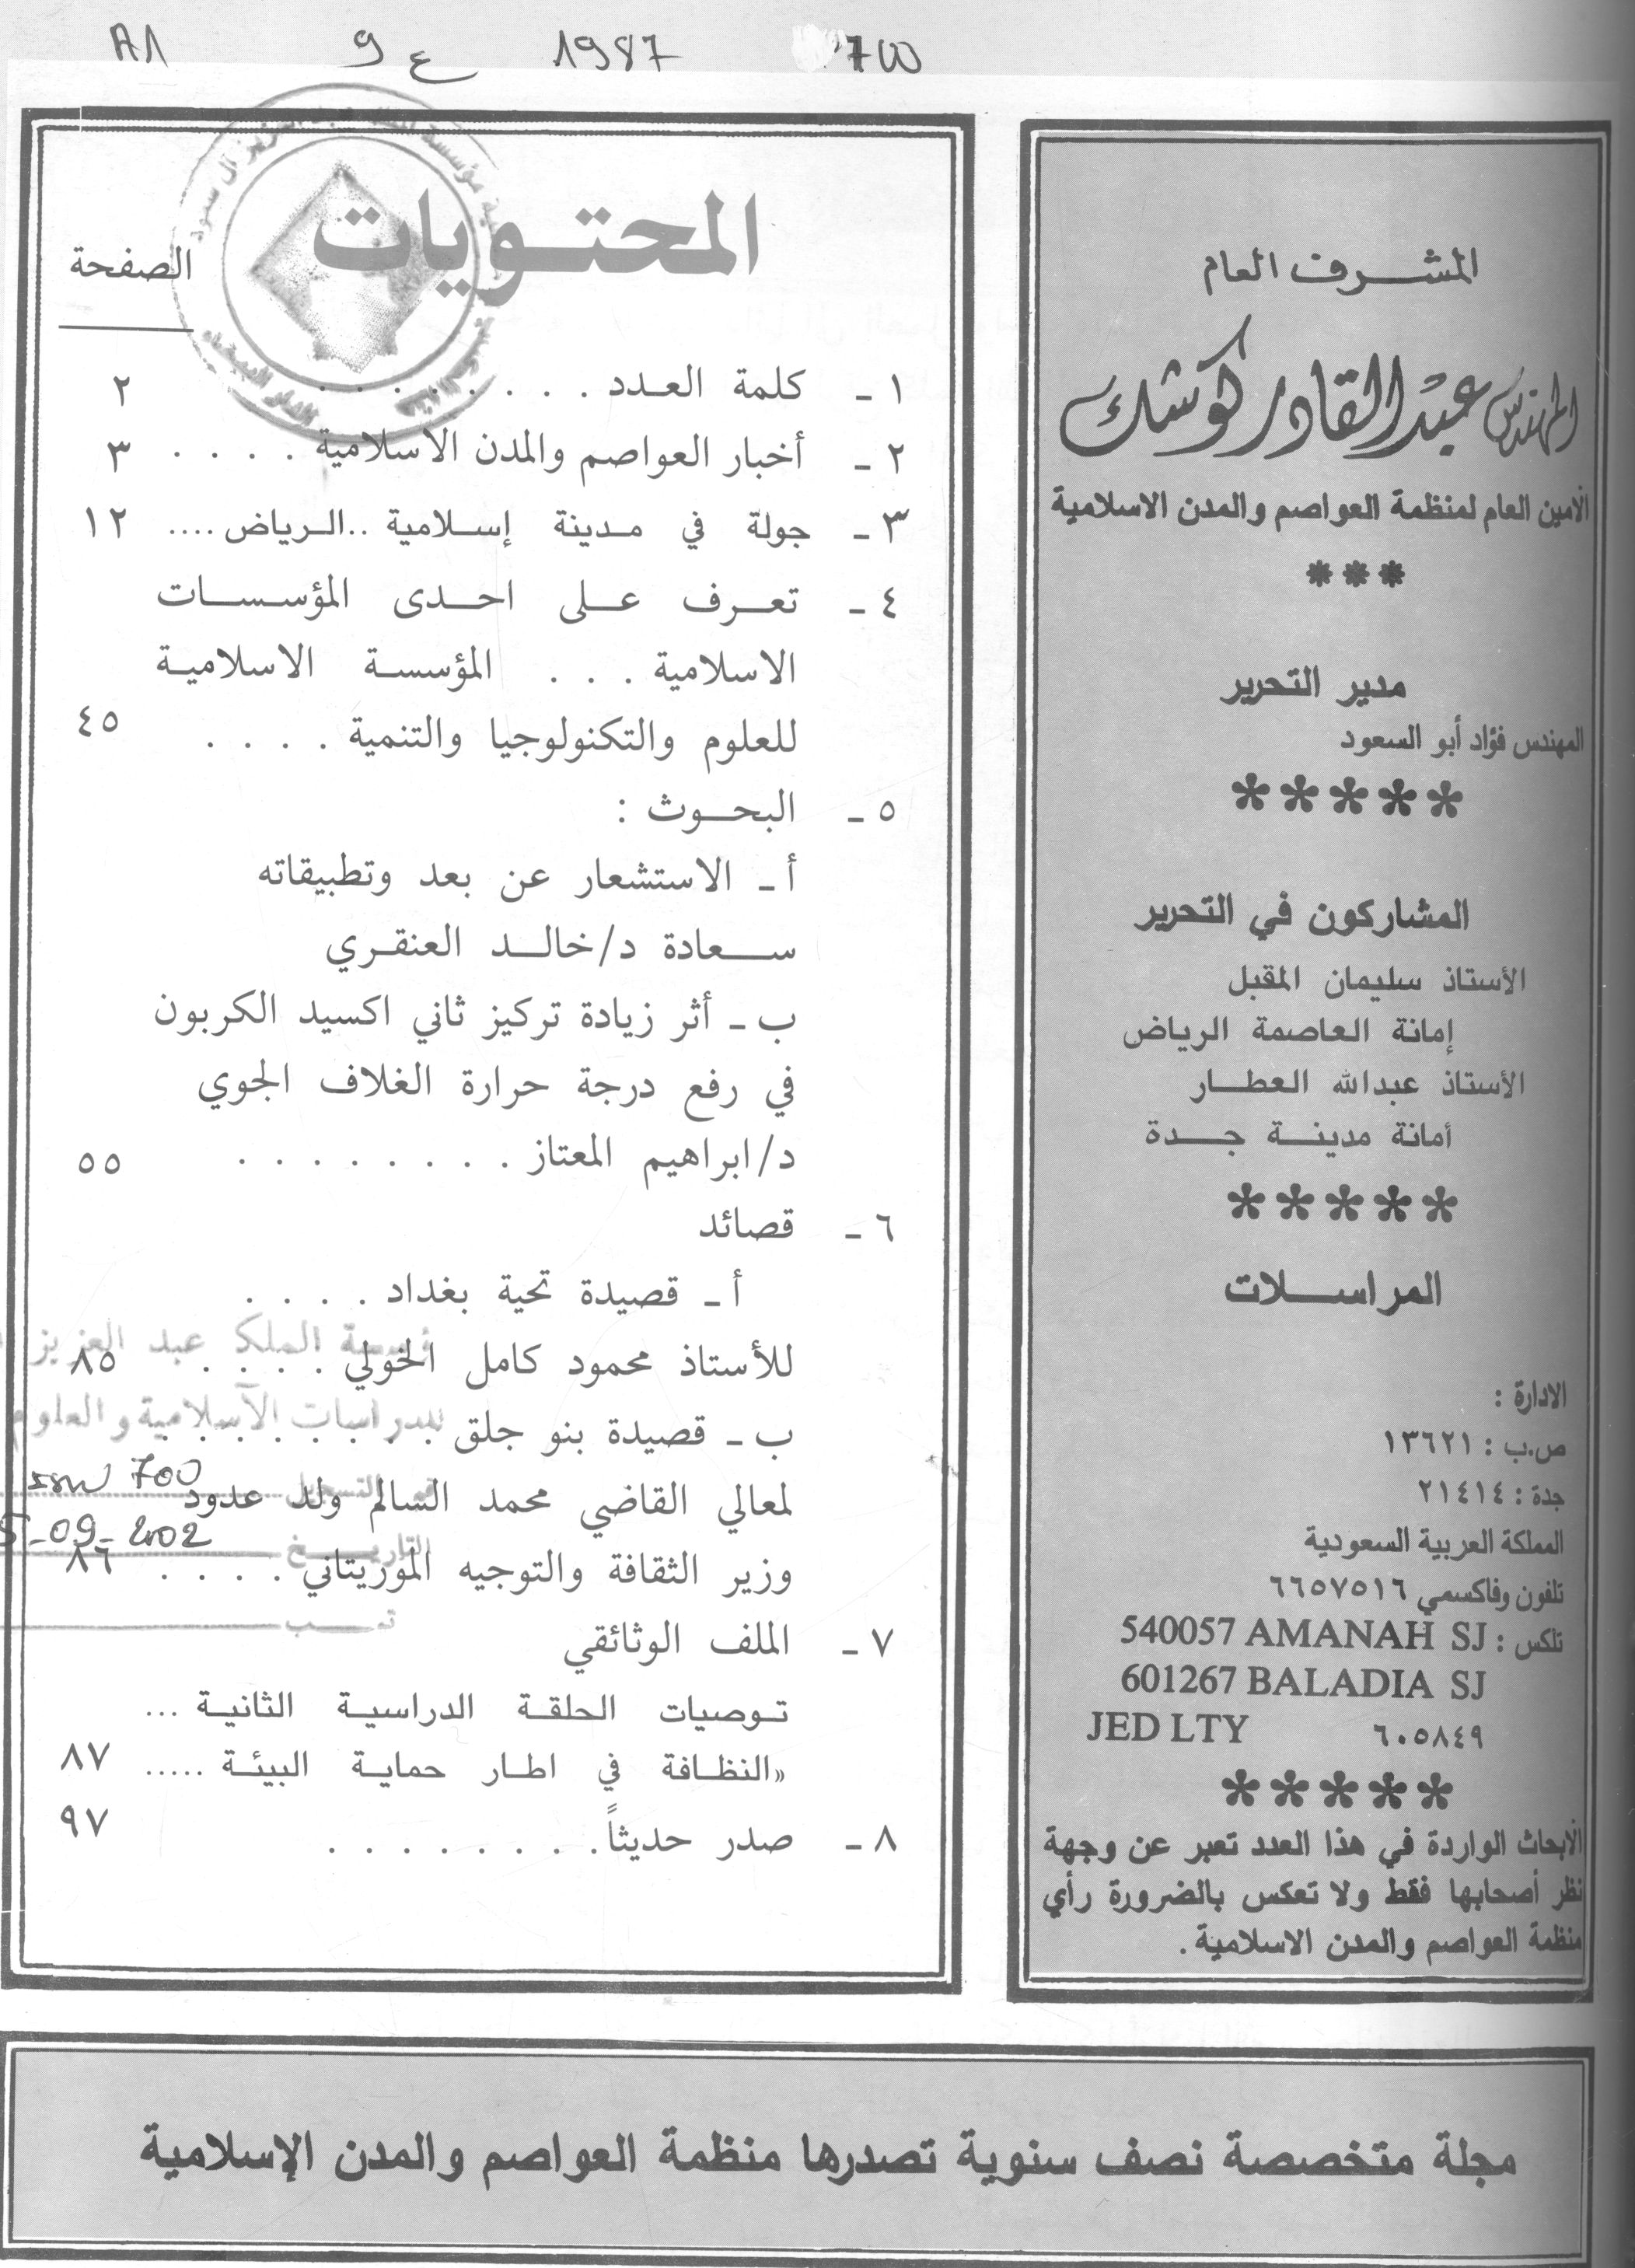 A1 9 ع 1987 700
المشرف العام
المهندس عبد القادر كوشك
الامين العام لمنظمة العواصم والمدن الاسلامية
***
مدير التحرير
المهندس فؤاد أبو السعود
*****
المشاركون في التحرير
الأستاذ سليمان المقبل
إمانة العاصمة الرياض
الأستاذ عبدالله العطار
أمانة مدينة جدة
*****
المراسلات
الادارة :
ص.ب : ١٣٦٢١
جدة : ٢١٤١٤
المملكة العربية السعودية
تلفون وفاكسمي ٦٦٥٧٥١٦
تلكس : 540057 AMANAH SJ
601267 BALADIA SJ
٦٠٥٨٤٩ JED LTY
*****
الابحاث الواردة في هذا العدد تعبر عن وجهة
نظر أصحابها فقط ولا تعكس بالضرورة رأي
منظمة العواصم والمدن الاسلامية .
المحتويات
الصفحة
١ - كلمة العدد . . . . . . . . ٢
٢ - أخبار العواصم والمدن الاسلامية . . . . ٣
٣ - جولة في مدينة إسلامية ..الرياض.... ١٢
٤ - تعرف على احدى المؤسسات
الاسلامية . . . المؤسسة الاسلامية
للعلوم والتكنولوجيا والتنمية . . . . ٤٥
٥ - البحوث :
أ - الاستشعار عن بعد وتطبيقاته
سعادة د/خالد العنقري
ب - أثر زيادة تركيز ثاني اكسيد الكربون
في رفع درجة حرارة الغلاف الجوي
د/ابراهيم المعتاز . . . . . . . . ٥٥
٦ - قصائد
أ - قصيدة تحية بغداد . . . .
للأستاذ محمود كامل الخولي . . . . ٨٥
ب - قصيدة بنو جلق . . . . . . . .
لمعالي القاضي محمد السالم ولد عدود
وزير الثقافة والتوجيه الموريتاني . . . . ٨٦
٧ - الملف الوثائقي
توصيات الحلقة الدراسية الثانية ...
«النظافة في اطار حماية البيئة ..... ٨٧
٨ - صدر حديثاً. . . . . . . . . ٩٧
مؤسسة الملك عبد العزيز
للدراسات الآسلامية والعلوم
700
التاريخ 09-2002
مجلة متخصصة نصف سنوية تصدرها منظمة العواصم والمدن الإسلامية